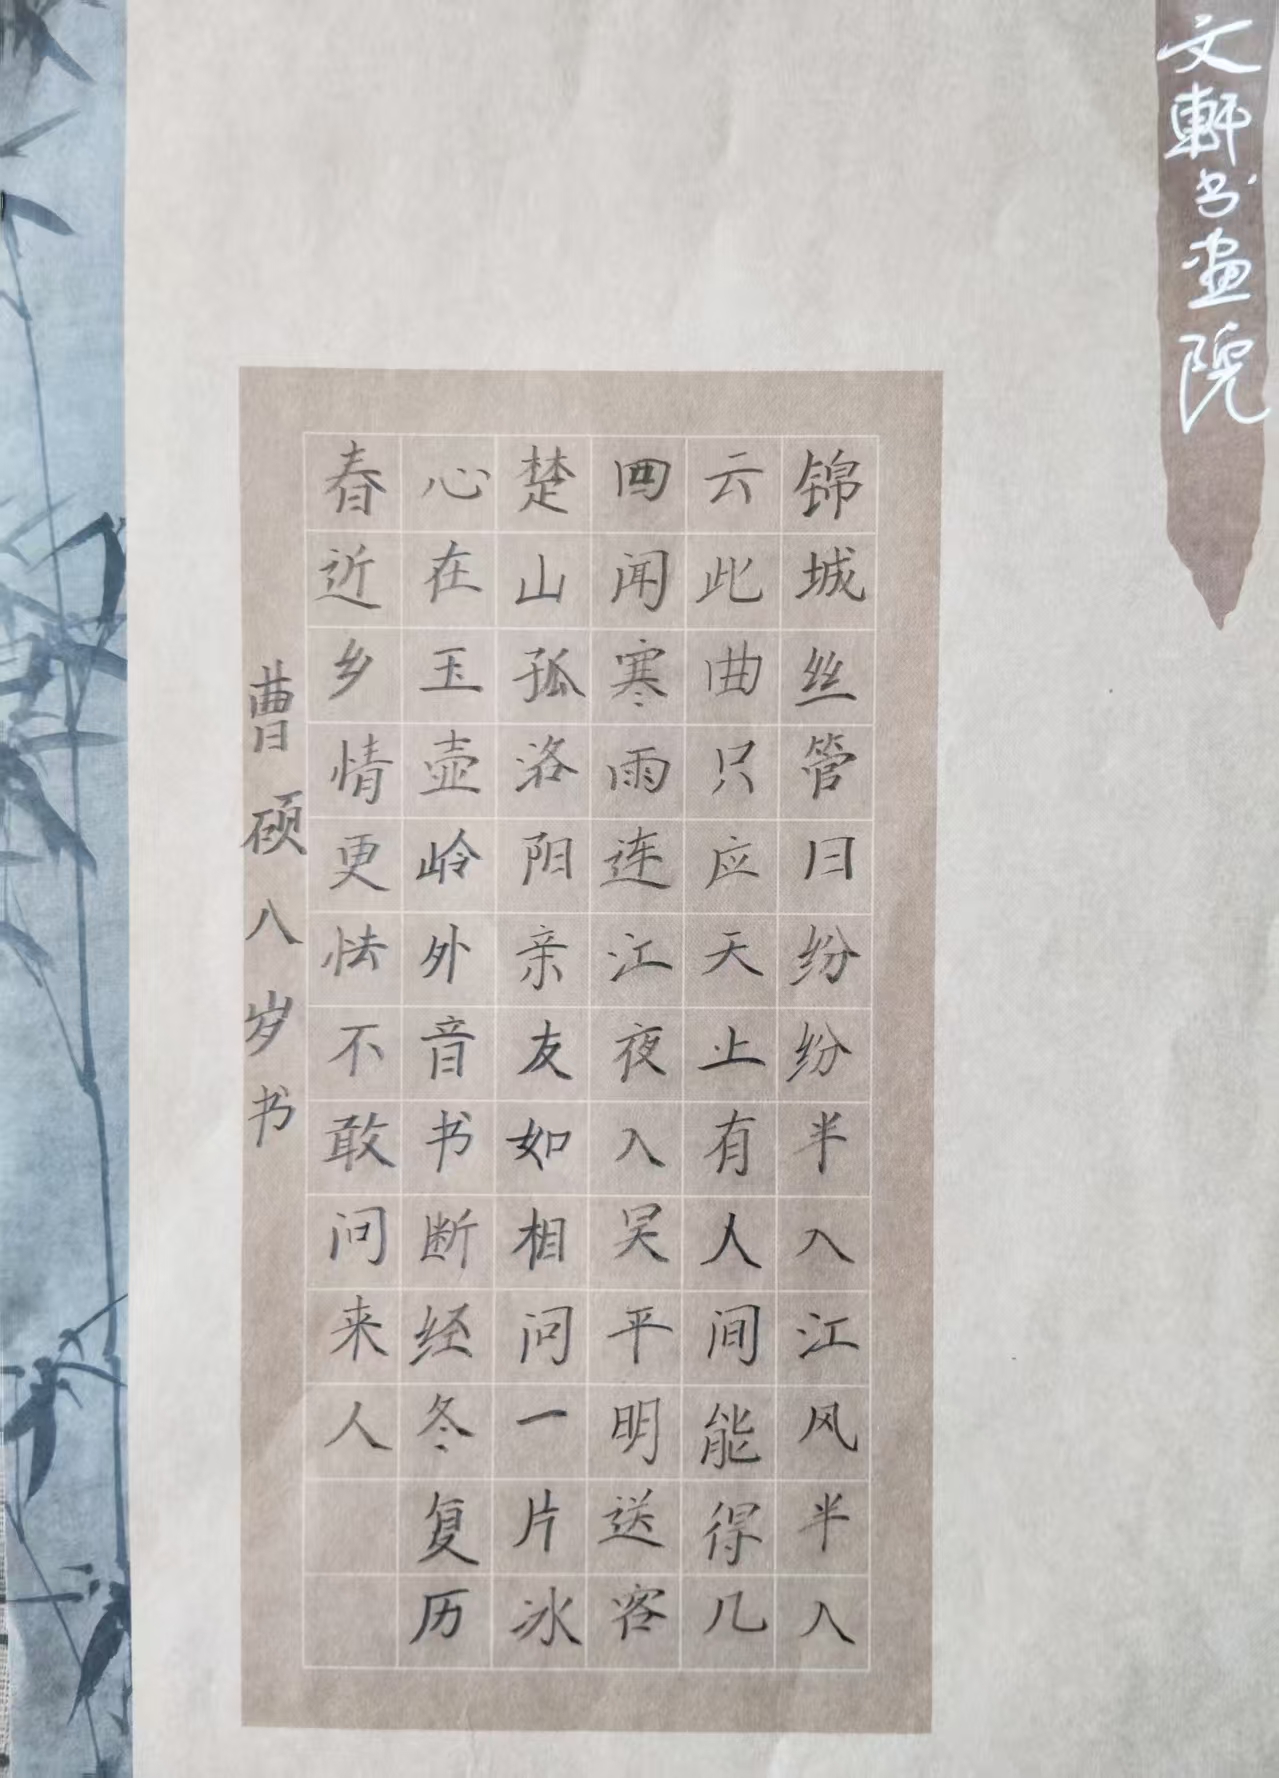 文軒书畫院
锦城丝管日纷纷半入江风半入
云此曲只应天上有人间能得几
回闻寒雨连江夜入吴平明送客
楚山孤洛阳亲友如相问一片冰
心在玉壶岭外音书断经冬复历
春近乡情更怯不敢问来人
曹硕八岁书